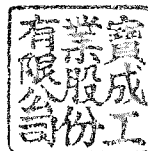 寶成工
業股份
有限公司